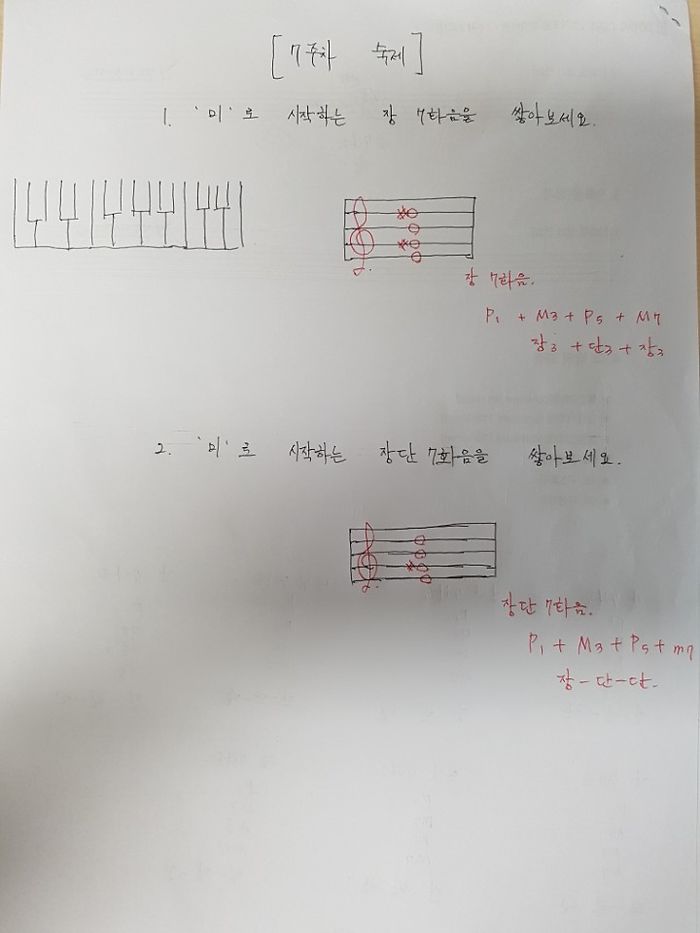 [7주차 숙제]
1. '미'로 시작하는 장 7화음을 쌓아보세요.
장 7화음.
P1 + M3 + P5 + M7
장3 + 단3 + 장3
2. '미'로 시작하는 장단 7화음을 쌓아보세요.
장단 7화음.
P1 + M3 + P5 + m7
장-단-단.